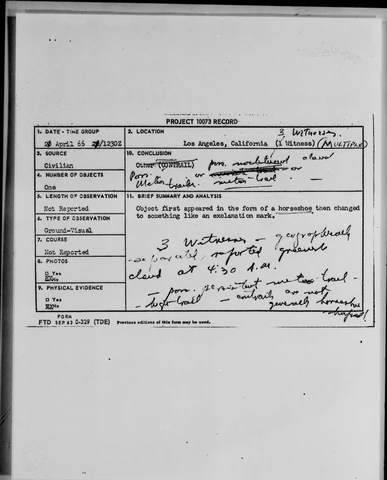 PROJECT 10073 RECORD
1. DATE - TIME GROUP
2 April 66 2/1230Z
2. LOCATION
3 Witnesses
Los Angeles, California (1 Witness) (MULTIPLE)
3. SOURCE
Civilian
10. CONCLUSION
Other (CONTRAIL) poss. noctilucent cloud
or
or meteor trail. —
4. NUMBER OF OBJECTS
One
5. LENGTH OF OBSERVATION
Not Reported
11. BRIEF SUMMARY AND ANALYSIS
Object first appeared in the form of a horseshoe, then changed
to something like an exclamation mark.
6. TYPE OF OBSERVATION
Ground-Visual
7. COURSE
Not Reported
8. PHOTOS
☐ Yes
No
9. PHYSICAL EVIDENCE
☐ Yes
No
3 Witnesses - geographically
separated, reported
cloud at 4:30 A.M.
- poss. persistent meteor trail -
- trail - contrails are not
generally horseshoe
shaped!
FORM
FTD SEP 63 0-329 (TDE) Previous editions of this form may be used.